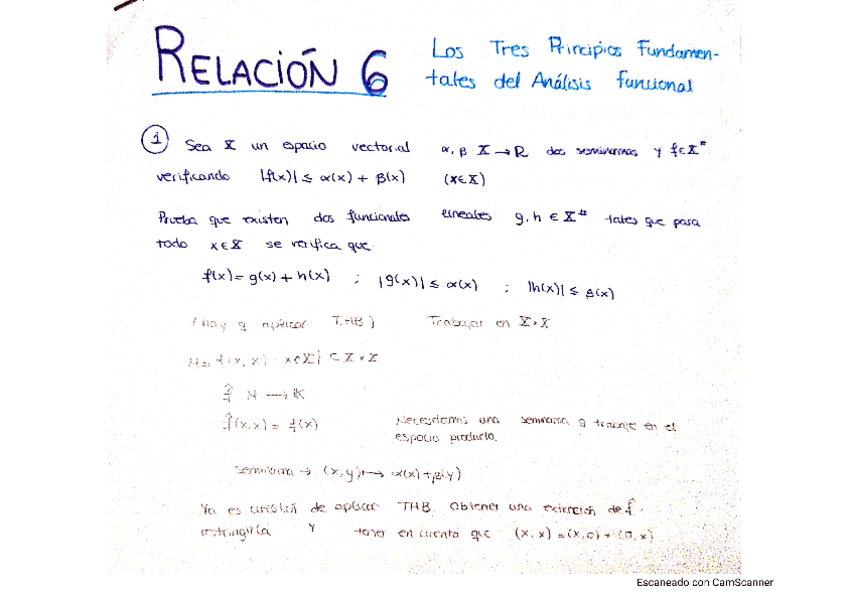 RELACIÓN 6
Los Tres Principios Fundamen-
tales del Análisis Funcional
① Sea X un espacio vectorial α, β X → R dos seminormas y f ∈ X#
verificando |f(x)| ≤ α(x) + β(x) (x∈X)
Prueba que existen dos funcionales lineales g, h ∈ X# tales que para
todo x ∈ X se verifica que
f(x) = g(x) + h(x) ; |g(x)| ≤ α(x) ; |h(x)| ≤ β(x)
(Hay q aplicar THB) Trabajar en X×X
M = {(x, x) : x∈X} ⊂ X×X
M → K
f̂(x,x) = f(x) Necesitamos una seminorma q trabaje en el
espacio producto.
Seminorma → (x,y) ↦ α(x)+β(y)
Ya es cuestión de aplicar THB. Obtener una extensión de f̂,
restringirla y tener en cuenta que (x,x) = (x,0) + (0,x)
Escaneado con CamScanner